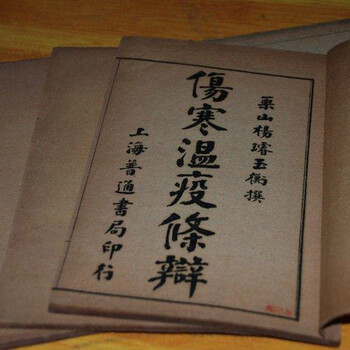 栗山楊璿玉衡撰
傷寒溫疫條辯
上海普通書局印行